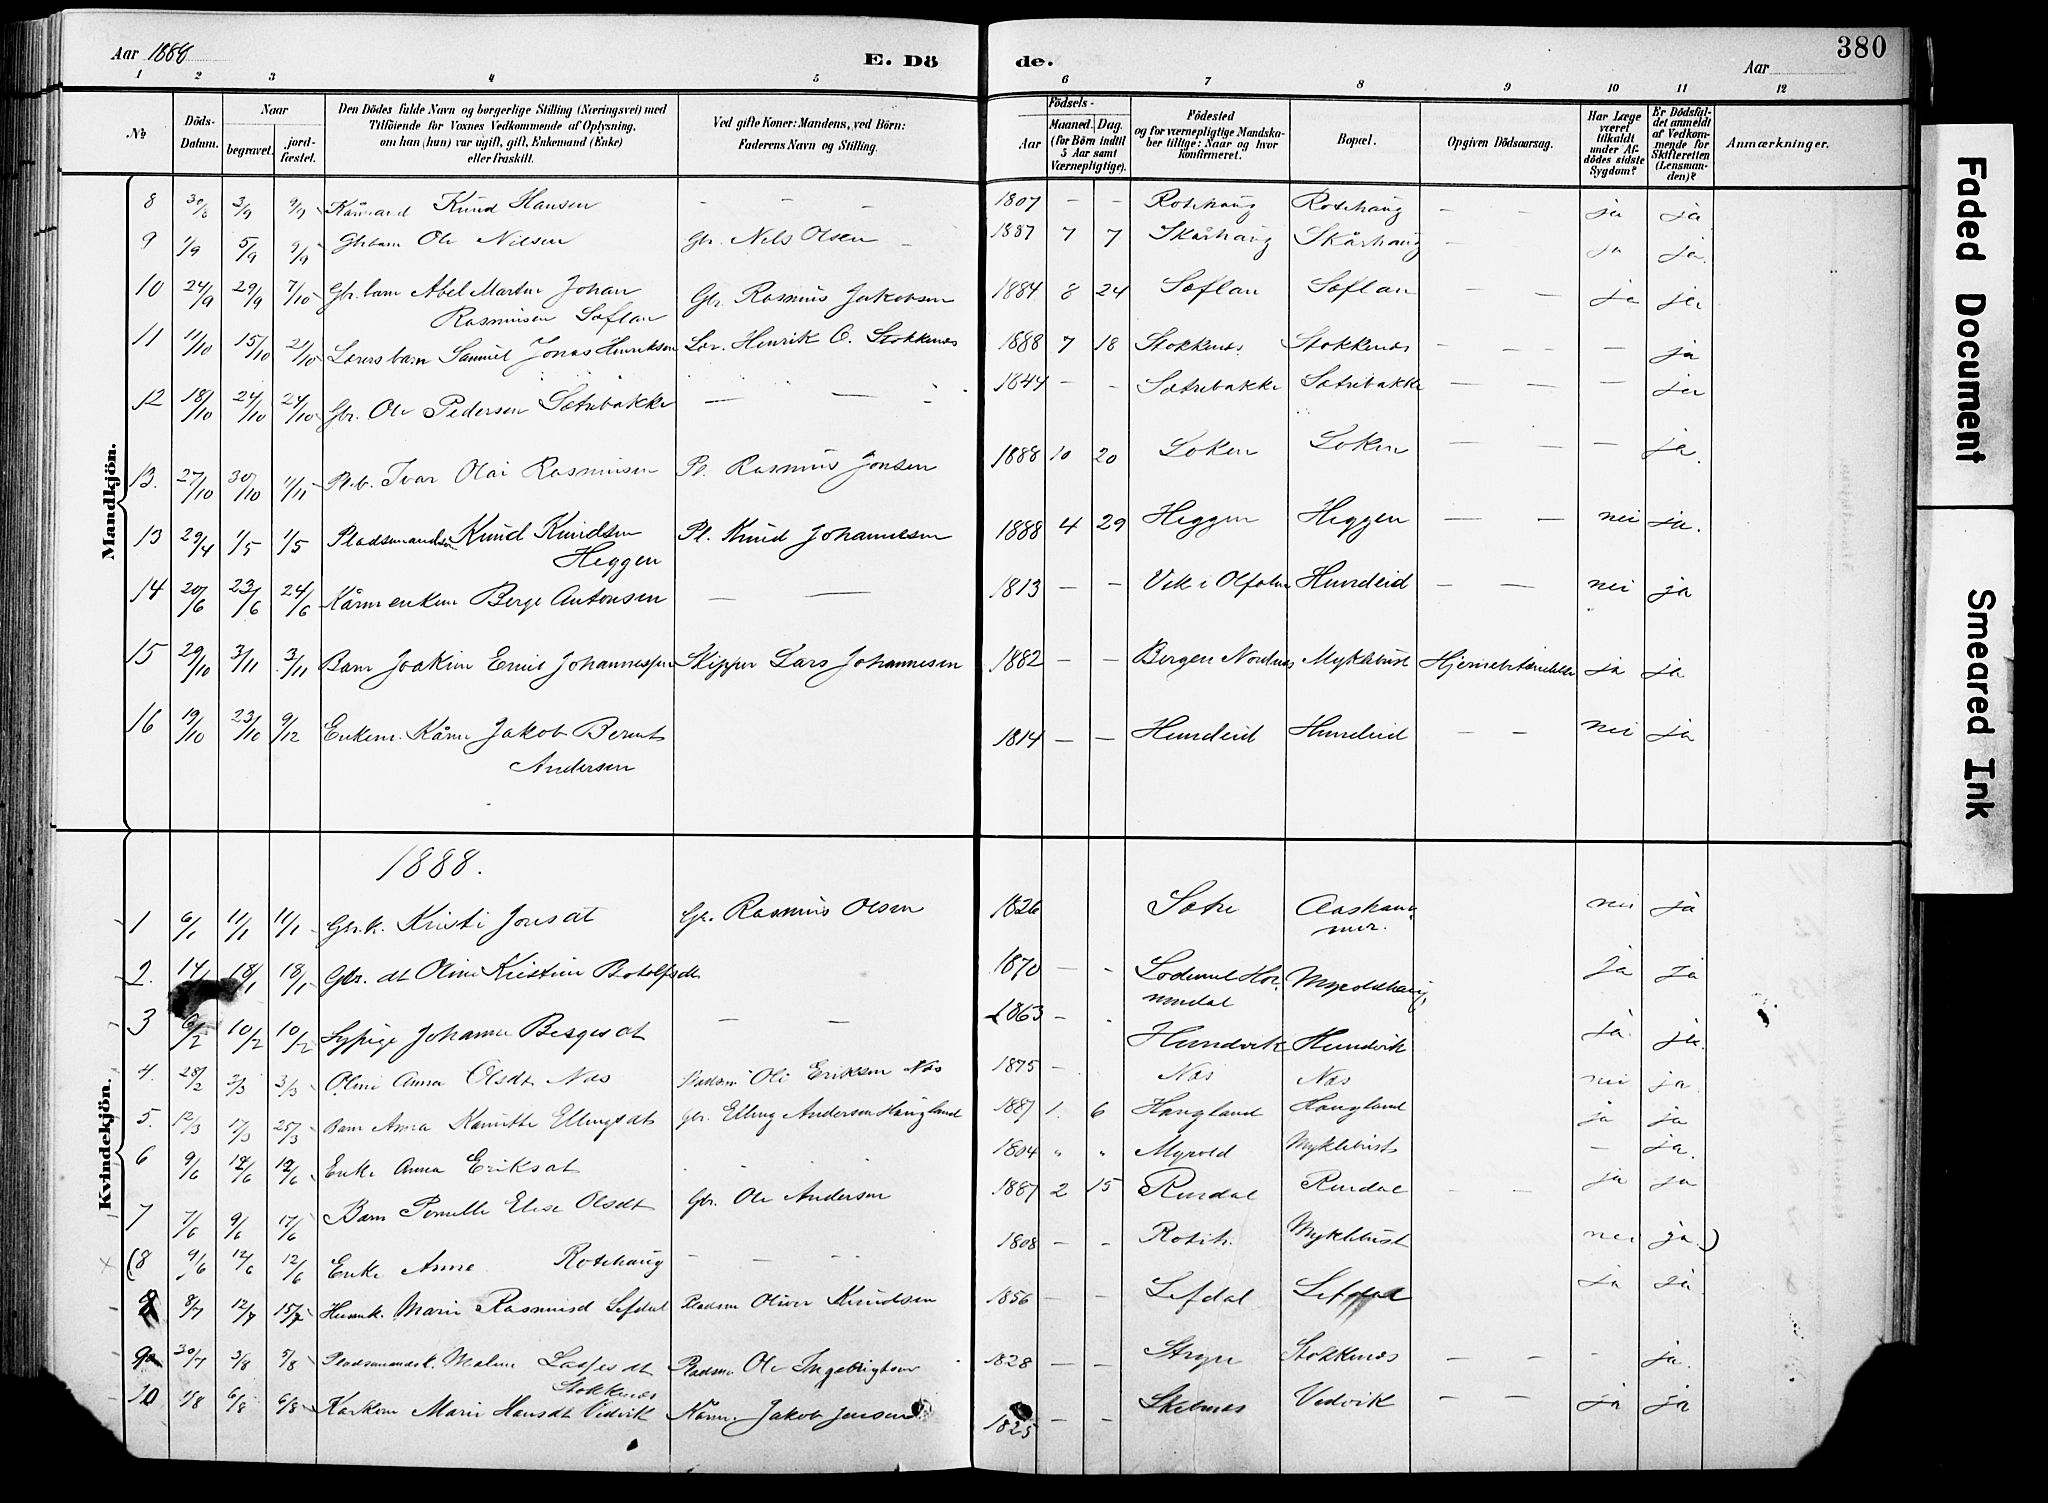 Aar 1888 E. Dö de. Aar 380
1 2 3 4 5 6 7 8 9 10 11 12
No
Döds-Datum.
Naar
begravet.
jord-fæstet.
Den Dödes fulde Navn og borgerlige Stilling (Næringsvei) med
Tilföiende for Voxnes Vedkommende af Oplysning,
om han (hun) var ugift, gift, Enkemand (Enke)
eller fraskilt.
Ved gifte Koner: Mandens, ved Börn:
Faderens Navn og Stilling.
Födsels-
Aar
Maaned. Dag.
(for Börn indtil
5 Aar samt
Værnepligtige).
Födested
og for værnepligtige Mandska-
ber tillige: Naar og hvor
konfirmeret.
Bopæl.
Opgiven Dödsaarsag.
Har Læge
været
tilkaldt
under Af-
dödes sidste
Sygdom?
Er Dödsfal-
det anmeldt
af Vedkom-
mende for
Skifteretten
(Lensman-
den)?
Anmærkninger.
Mandkjön.
8 30/8 3/9 9/9 Knud Hansen — — — 1807 — — Rotehaug Rotehaug — — ja ja
9 1/9 5/9 9/9 Gbr barn Ole Nilsen Gbr. Nils Olsen — 1887 7 7 Skårhaug Skårhaug — ja ja.
10 24/9 29/9 7/10 Gbr. barn Abel Martin Johan
Rasmusen Soflan Gbr. Rasmus Jakobsen 1884 8 24 Soflan Soflan — — ja ja
11 11/10 15/10 21/10 Lærers barn Samuel Jonas Henriksen Lær. Henrik O. Stokkenes 1888 7 18 Stokkenes Stokkenes — — — ja
12 18/10 24/10 24/10 Gbr. Ole Pedersen Sætrebakke — — — 1844 — — Sætrebakke Sætrebakke — — — ja
13. 27/10 30/10 1/11 Pl.b. Ivar Olai Rasmusen Pl. Rasmus Jonsen 1888 10 20 Løken Løken — — — ja.
13 29/4 1/5 1/5 Pladsmandsøn Knud Knudsen
Heggen Pl. Knud Johannesen 1888 4 29 Heggen Heggen — — nei ja.
14 20/6 23/6 24/6 Berge Antonsen — — 1813 — — Vik i Hundeid — — nei ja
15 29/10 3/11 3/11 Barn Joakim Emil Johannessen Skipper Lars Johannesen 1882 — — Bergen Nordnes Myklebust ja ja
16 19/10 23/10 9/12 Enkem. Kårm Jakob Bernt
Andersen 1814 — — Hundeid Hundeid — — nei ja
Kvindekjön.
1888.
1 6/1 11/1 11/1 Gbr.k. Kristi Jonsdt Gbr. Rasmus Olsen 1826 Sætre Aaskam-
mer. nei ja
2. 14/1 18/1 18/1 Gbr. dt Oline Kristine Botolfsdt 1870 — - Hor-
nindal ja ja
3 6/2 10/2 10/2 Sypige Johanne Bergesdt — — 1863 — . Hundvik Hundvik ja. ja.
4. 28/2 3/3 3/3 Oline Anna Olsdt Nos Pladsm Ole Eriksen Nos 1875 — Nos Nos nei ja.
5. 12/3 17/3 25/3 Barn Anna Kanutte Ellingsdt Gbr. Elling Andersen Haugland 1887 1. 6 Haugland Haugland ja ja
6 9/6 12/6 12/6 Enke Anna Eriksdt 1804 " " Myrold Myklebust — ja.
7 7/6 9/6 17/6 Barn Pernille Elise Olsdt Gbr. Ole Andersen 1887 2 15 Rusdal Rusdal — — ja ja
(8 9/6 12/6 12/6 Enke Anne Rotehaug — — 1808 — - Roteh. Myklebust nei ja.)
8/7 12/7 15/7 Husmk. Marie Rasmusd Lefdal Pladsm Oliver Knudsen 1856 — — Lefdal Lefdal ja ja
9 30/7 3/8 5/8 Pladsmandsk. Malene Lassesdt
Stokkenes Pladsm Ole Ingebrigtsen 1828 — — Stryn Stokkenes — — - ja.
10 1/8 6/8 6/8 Marie Hansdt Vedvik Kårm. Jakob Jensen 1825 — — Vedvik — — ja ja
Faded Document
Smeared Ink